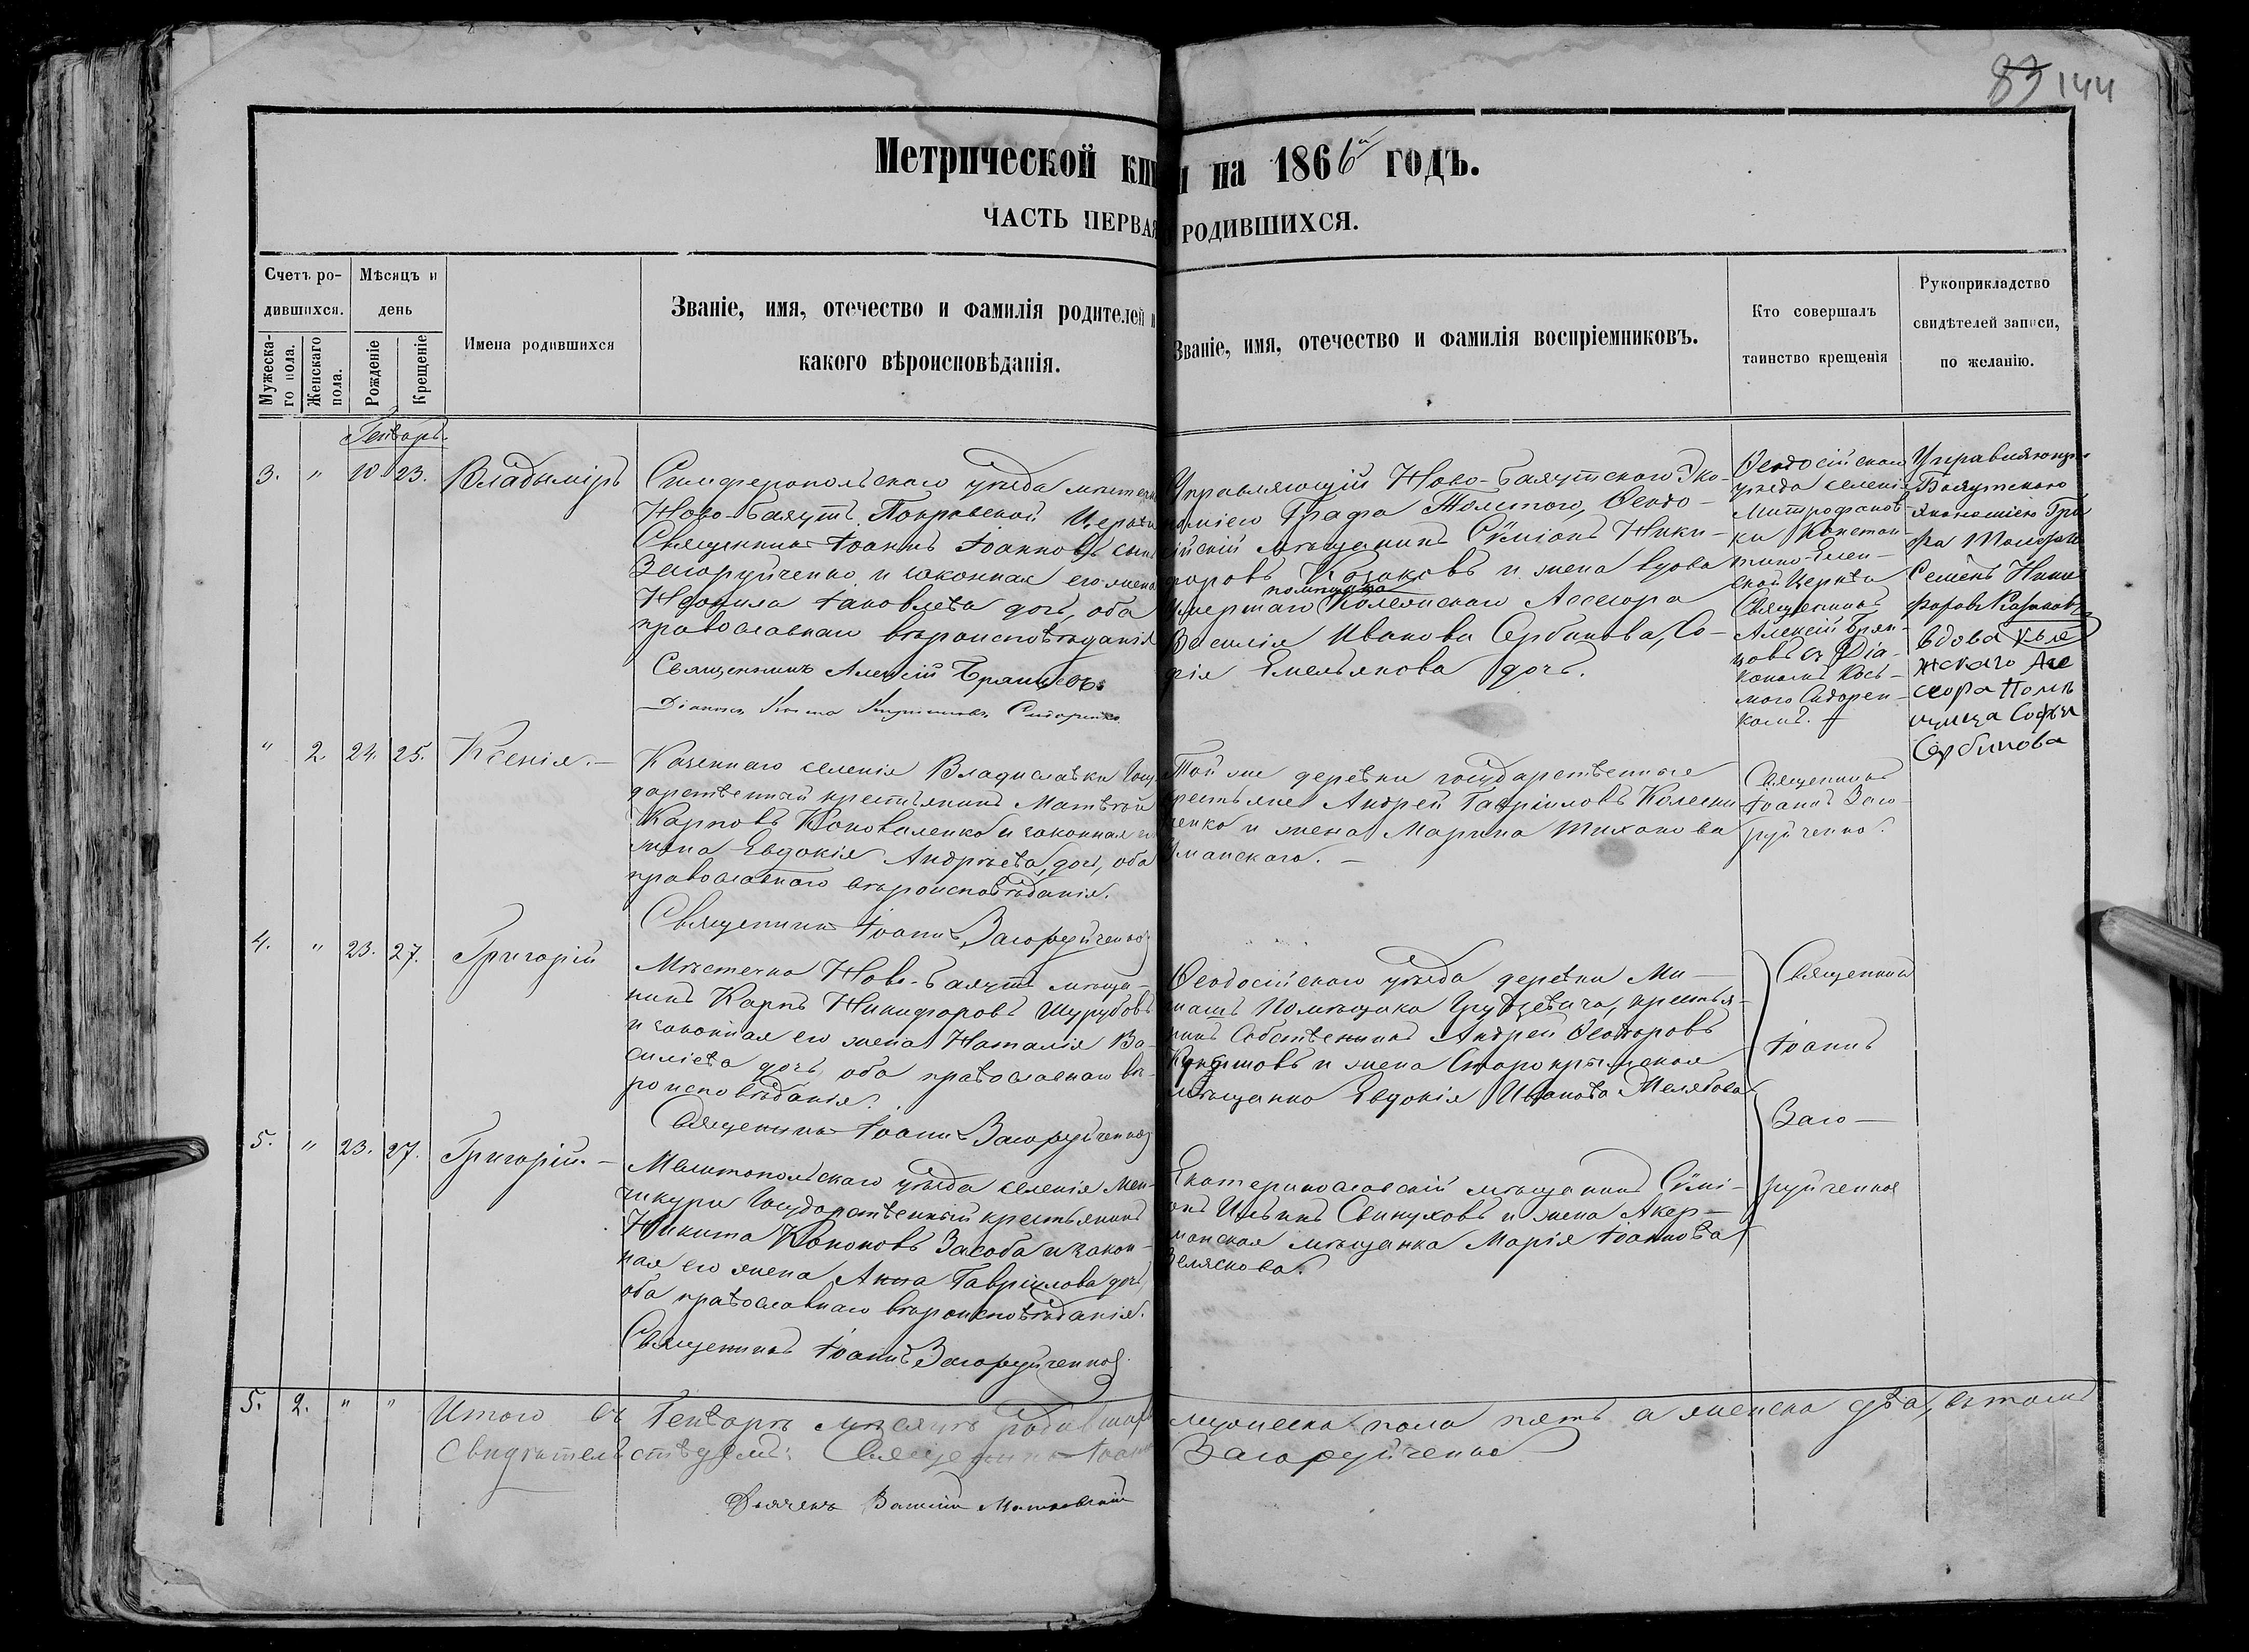 83 144
Метрической кни и на 1866й годъ.
ЧАСТЬ ПЕРВАЯ РОДИВШИХСЯ.
Счетъ ро-
дившихся.
Мужеска-
го пола.
Женскаго
пола.
Мѣсяцъ и
день
Рожденіе
Крещеніе
Имена родившихся
Званіе, имя, отечество и фамилія родителей и
какого вѣроисповѣданія.
Званіе, имя, отечество и фамилія воспріемниковъ.
Кто совершалъ
таинство крещенія
Рукоприкладство
свидѣтелей записи,
по желанію.
Генварь
3. " 10 23. Владиміръ
Симферопольскаго уѣзда мѣстечка
Ново-Баяутъ Покровской Церкви
Священникъ Іоаннъ Іоанновъ сынъ
Загоруйченко и законная его жена
Неонила Іаковлева дочь, оба
православнаго вѣроисповѣданія
Священникъ Алексій Брянцевъ
Діаконъ Косма Сидоренко
Управляющій Ново-Баяутскаго Эко-
номіею Графа Толстаго, Ѳеодо-
сійскій мѣщанинъ Сѵміонъ Ники-
форовъ Козаковъ и жена вдова
помѣщица
умершаго Колежскаго Ассесора
Василія Иванова Сербинова, Со-
фія Емельянова дочь.
Ѳеодосійскаго
уѣзда селенія
Митрофанов-
ки Констан-
тино-Елен-
ской Церкви
Священникъ
Алексій Брян-
цовъ съ Діа-
кономъ Кось-
мою Сидорен-
комъ.
Управляющій
Баяутскаго
Экономіею Гра
фа Толстаго
Семенъ Ники
форовъ Казаковъ
вдова Кале
жскаго Асе
сора Помѣ
щица Софья
Сербинова
" 2 24. 25. Ксенія.—
Казеннаго селенія Владиславки Госу
дарственный крестьянинъ Матвѣй
Карповъ Коноваленко и законная его
жена Евдокія Андрѣева дочь, оба
православнаго вѣроисповѣданія.
Священникъ Іоаннъ Загоруйченко
Той же деревни государственные
крестьяне Андрей Гавріиловъ Колесни
ченко и жена Марина Тиханова
Уманскаго.—
Священникъ
Іоаннъ Заго-
руйченко.
4. " 23. 27. Григорій
Мѣстечка Ново-Баяутъ мѣща-
нинъ Карпъ Никифоровъ Шурубовъ
и законная его жена Наталія Ва-
силіева дочь, оба православнаго вѣ-
роисповѣданія.
Священникъ Іоаннъ Загоруйченко
Ѳеодосійскаго уѣзда деревни Ми-
Помѣщика крестья-
нинъ Собственникъ Андрей Ѳеодоровъ
и жена Старокрымская
мѣщанка Евдокія Иванова
Священникъ
Іоаннъ
Заго—
руйченко
5. " 23. 27. Григорій.—
Мелитопольскаго уѣзда селенія Мен-
чикури Государственный крестьянинъ
Никита Кононовъ Засоба и закон-
ная его жена Анна Гавріилова дочь,
оба православнаго вѣроисповѣданія.
Священникъ Іоаннъ Загоруйченко
Екатеринославскій мѣщанинъ Сѵмі-
онъ Ильинъ Свинуховъ и жена Акер-
манская мѣщанка Марія Іоаннова
5. 2. " " Итого въ Генварѣ мѣсяцѣ родившихся мужеска пола пять а женска два, въ томъ
Свидѣтельствуемъ: Священникъ Іоаннъ Загоруйченко
Дьячекъ Василій